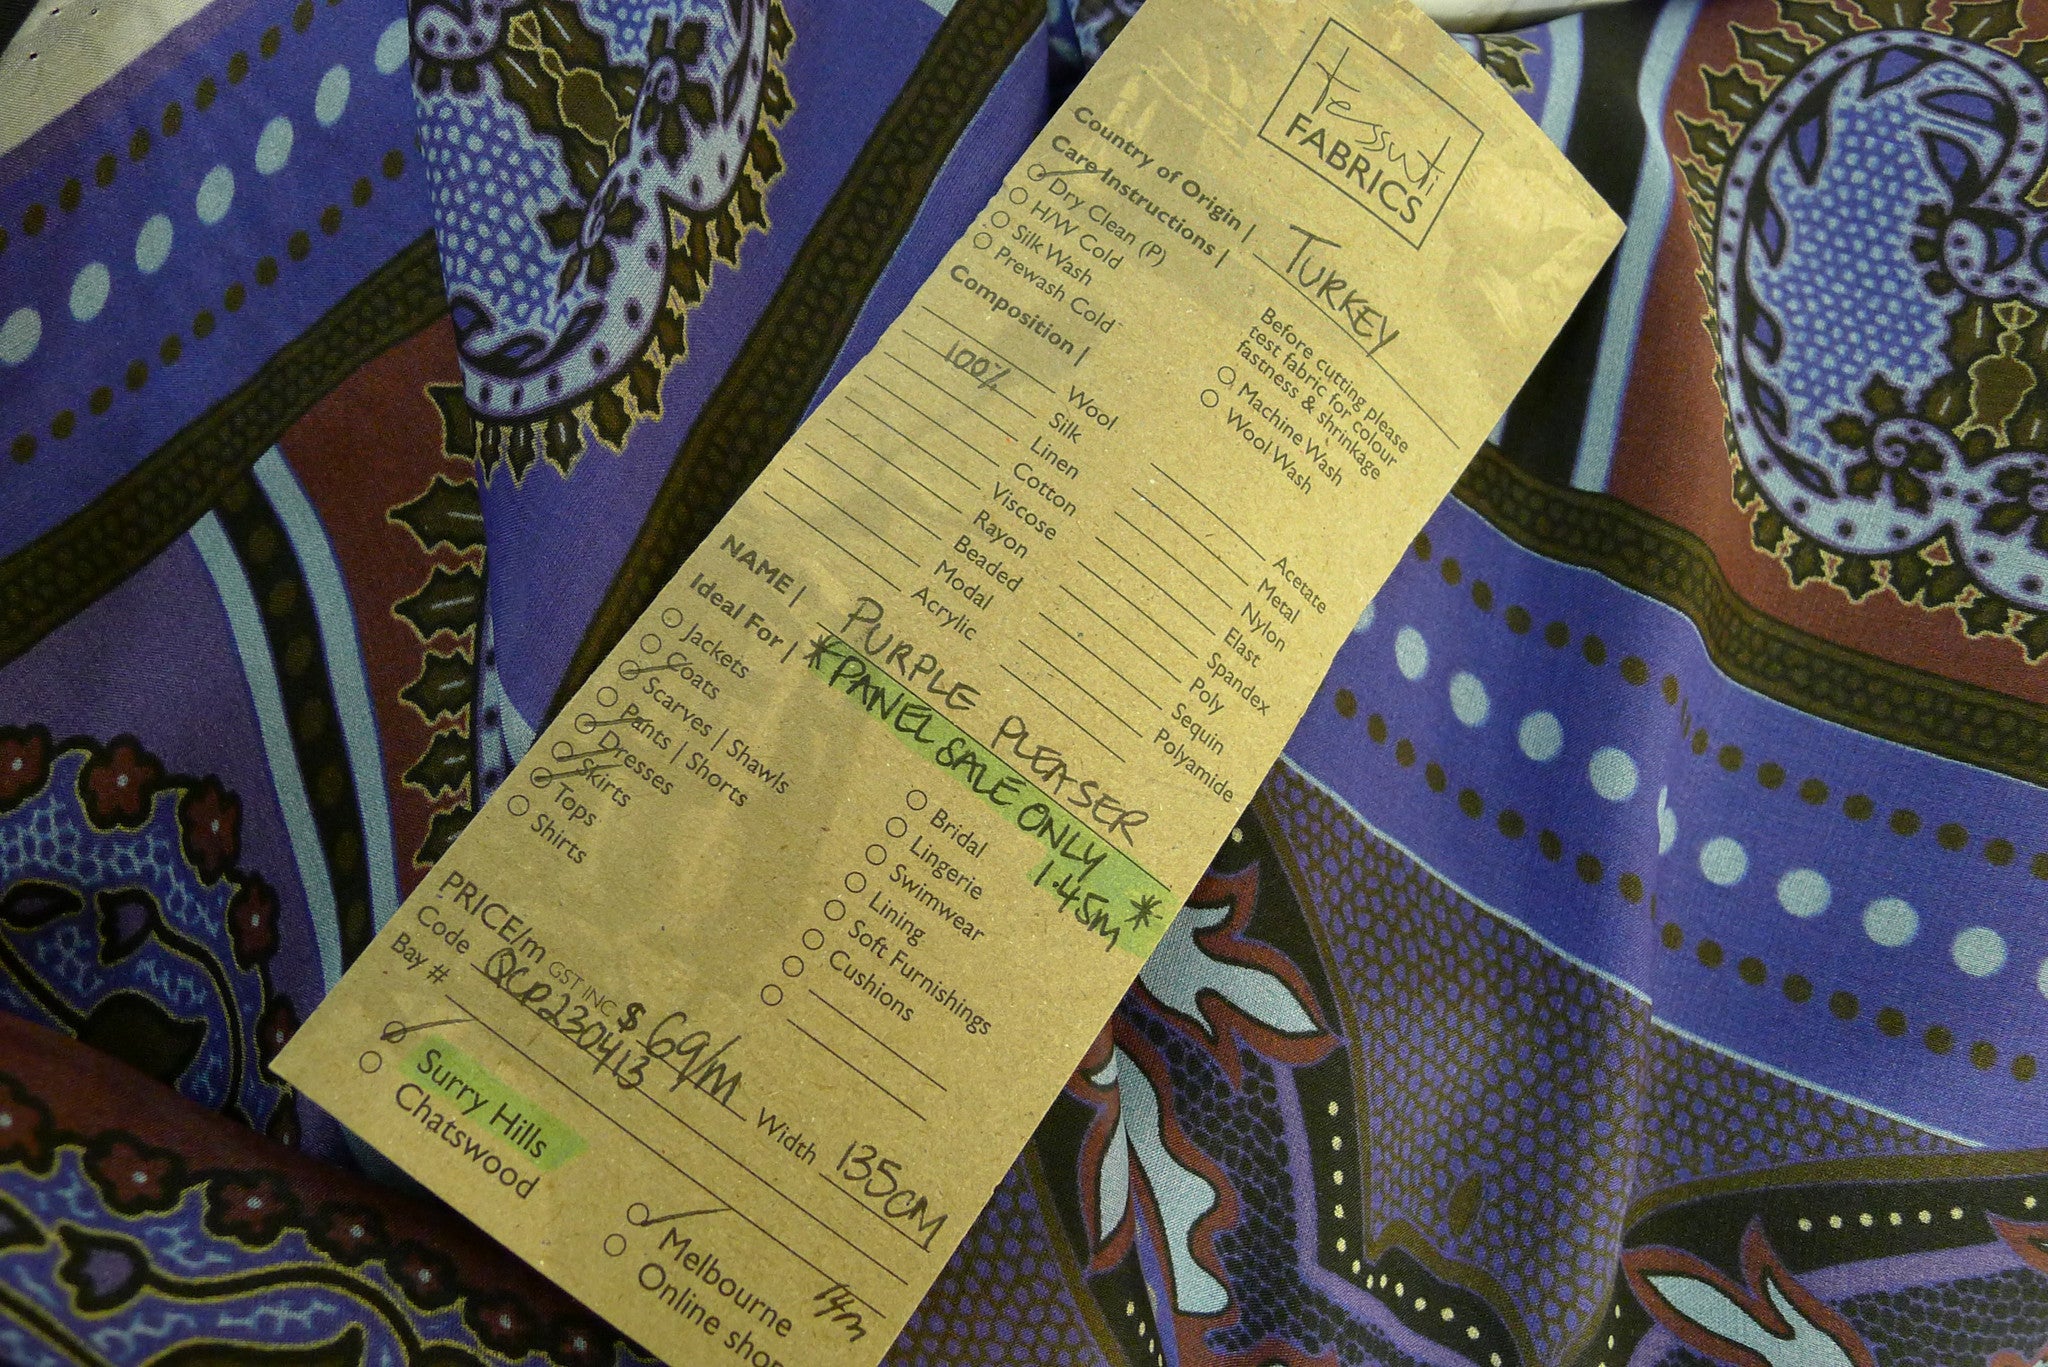 Tessuti
FABRICS
Country of Origin | TURKEY
Care Instructions |
Dry Clean (P)
H/W Cold
Silk Wash
Prewash Cold
Before cutting please
test fabric for colour
fastness & shrinkage
Machine Wash
Wool Wash
Composition |
Wool
100% Silk
Linen
Cotton
Viscose
Rayon
Beaded
Modal
Acrylic
Acetate
Metal
Nylon
Elast
Spandex
Poly
Sequin
Polyamide
NAME | PURPLE PLEASER
*PANEL SALE ONLY
1.45m *
Ideal For |
Jackets
Coats
Scarves | Shawls
Pants | Shorts
Dresses
Skirts
Tops
Shirts
Bridal
Lingerie
Swimwear
Lining
Soft Furnishings
Cushions
PRICE/m GST INC $ 69/m Width 135cm
Code QCP230413
Bay #
Surry Hills
Chatswood
Melbourne 14m
Online shop